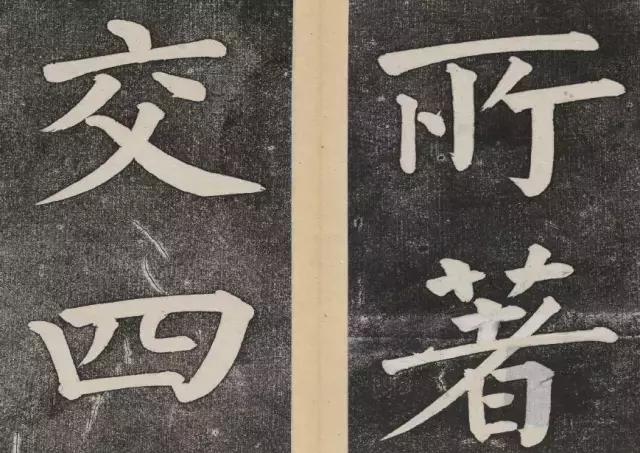 所著
交四